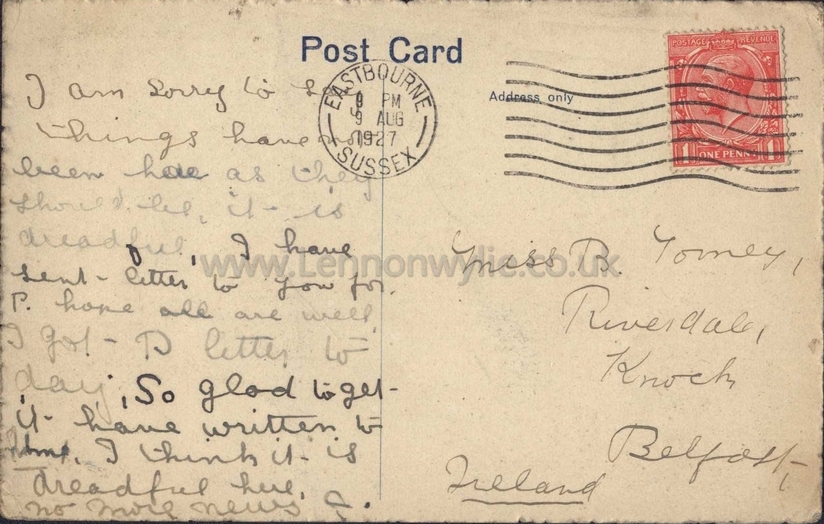 Post Card
I am sorry to
things have
been here as they
should be, it is
dreadful, I have
sent letter to you for
P. hope all are well
I got D letter to
day, So glad to get
it have written to
Home. I think it is
dreadful here,
no more news
EASTBOURNE
PM
9 AUG
1927
SUSSEX
Address only
POSTAGE REVENUE
1 ONE PENNY 1
www.Lennonwylie.co.uk
Miss R. Tomey,
Riverdale,
Knock
Belfast,
Ireland